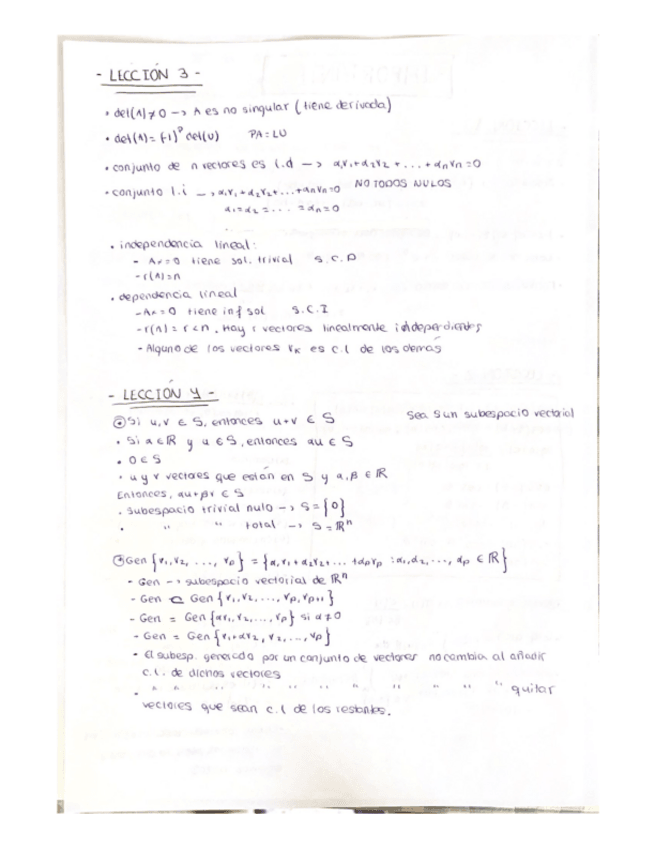 - LECCIÓN 3 -
• det(A) ≠ 0 -> A es no singular (tiene derivada)
• det(A) = (-1)^p det(U) PA = LU
• conjunto de n vectores es l.d -> α₁v₁+α₂v₂ + ... + αₙvₙ = 0
• conjunto l.i -> α₁v₁+α₂v₂+...+αₙvₙ=0 NO TODOS NULOS
α₁=α₂=... =αₙ=0
• independencia lineal:
- Ax=0 tiene sol. trivial S.C.D
- r(A)=n
• dependencia lineal
- Ax=0 tiene inf sol S.C.I
- r(A) = r < n. Hay r vectores linealmente independientes
- Alguno de los vectores vₖ es c.l de los demás
- LECCIÓN 4 -
Si u,v ∈ S, entonces u+v ∈ S Sea S un subespacio vectorial
• Si a ∈ ℝ y u ∈ S, entonces au ∈ S
• 0 ∈ S
• u y v vectores que están en S y α,β ∈ ℝ
Entonces, αu+βv ∈ S
• subespacio trivial nulo -> S = {0}
• " " total -> S = ℝⁿ
Gen {v₁,v₂, ..., vₚ} = {α₁v₁+α₂v₂+... +αₚvₚ : α₁,α₂,..., αₚ ∈ ℝ}
- Gen -> subespacio vectorial de ℝⁿ
- Gen ⊂ Gen {v₁,v₂,...,vₚ,vₚ₊₁}
- Gen = Gen {αv₁,v₂,...,vₚ} si α≠0
- Gen = Gen {v₁+αv₂,v₂,...,vₚ}
• El subesp. generado por un conjunto de vectores no cambia al añadir
c.l. de dichos vectores
• " " " " " " " " " " " quitar
vectores que sean c.l de los restantes.